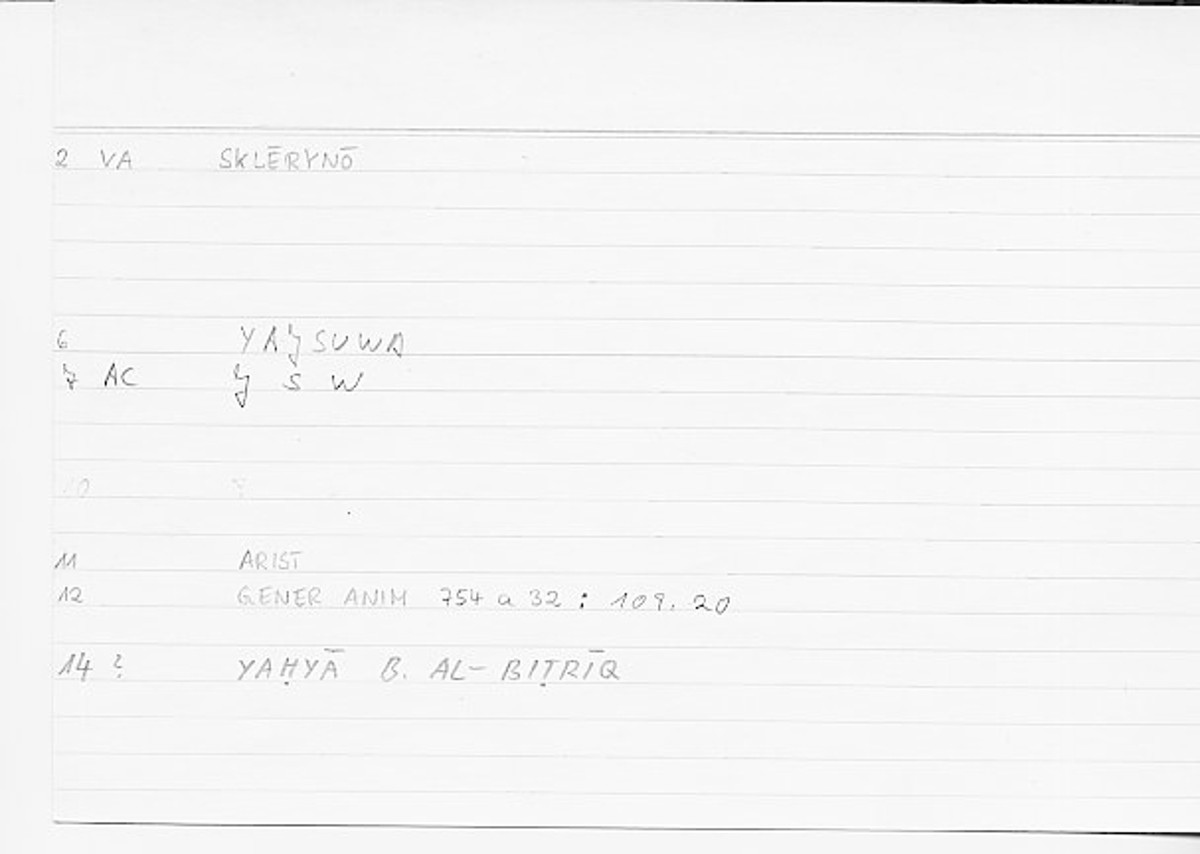 2 VA SKLĒRYNŌ
6 YAʒSUWA
7 AC ʒ S W
10
11 ARIST
12 GENER ANIM 754 a 32 : 109. 20
14 ? YAḤYĀ B. AL-BIṬRĪQ